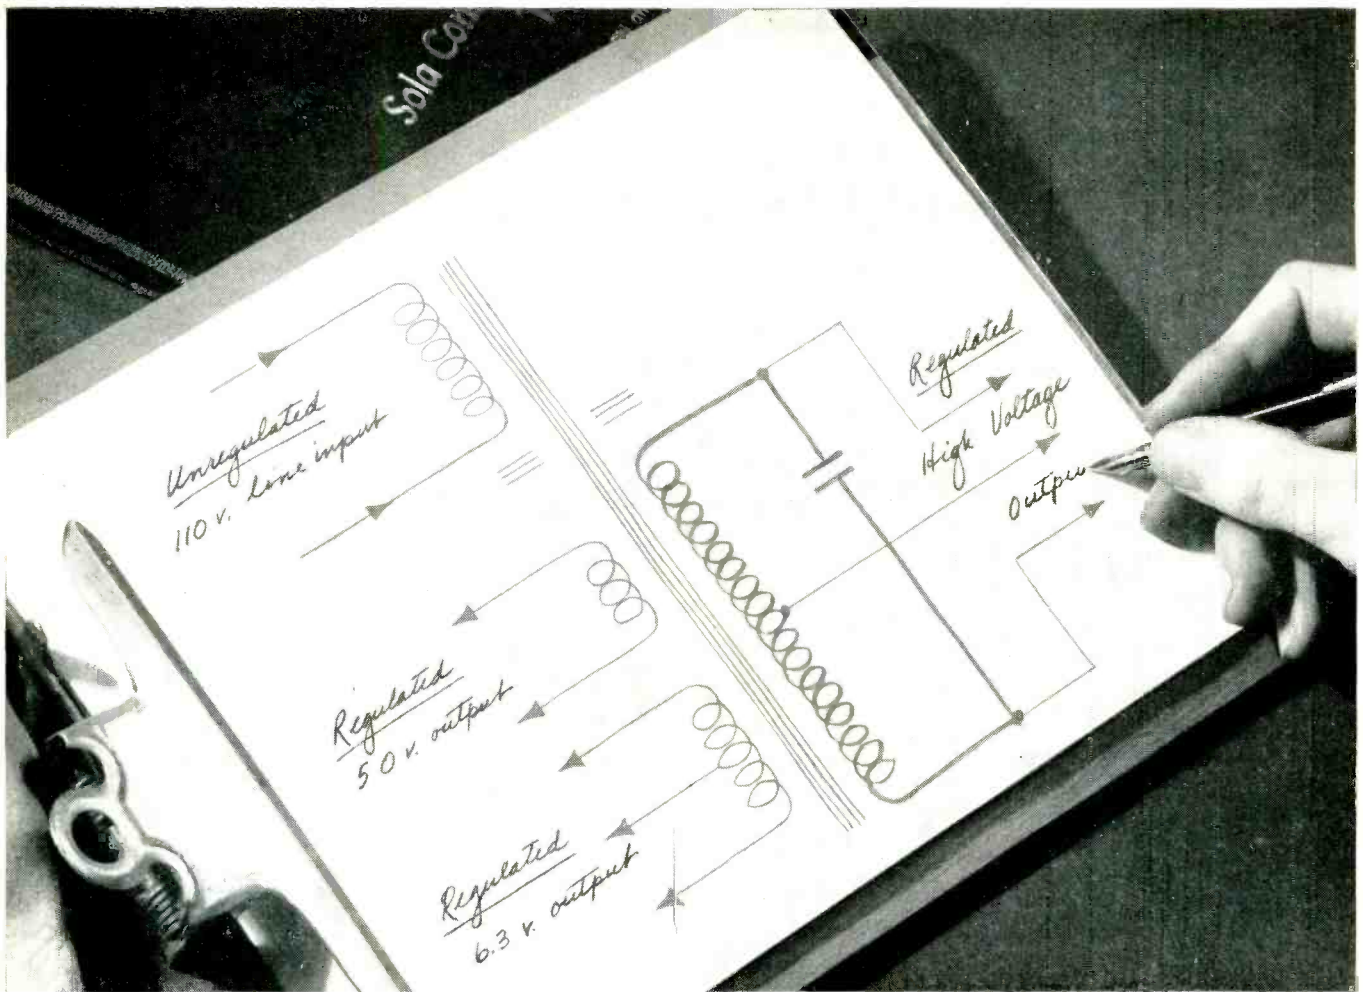 Sola Con
Unregulated
110 v. line input
Regulated
5 0 v. output
Regulated
6.3 v. output
Regulated
High Voltage
Outpu